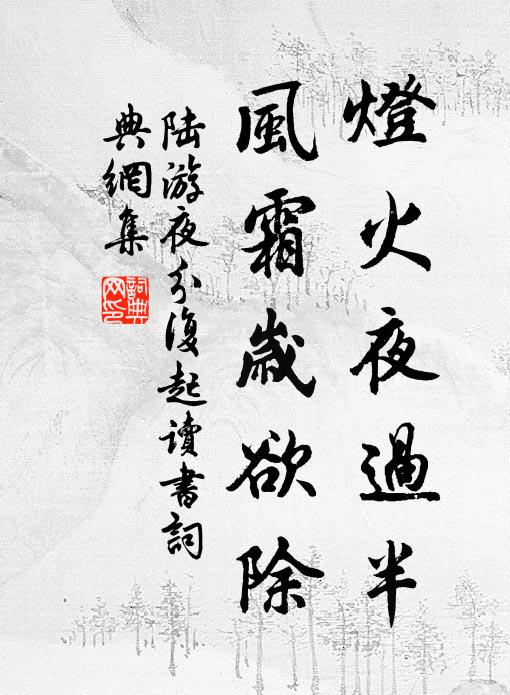 燈火夜過半
風霜歲欲除
陸游夜分復起讀書詞
典網集
詞典
网印